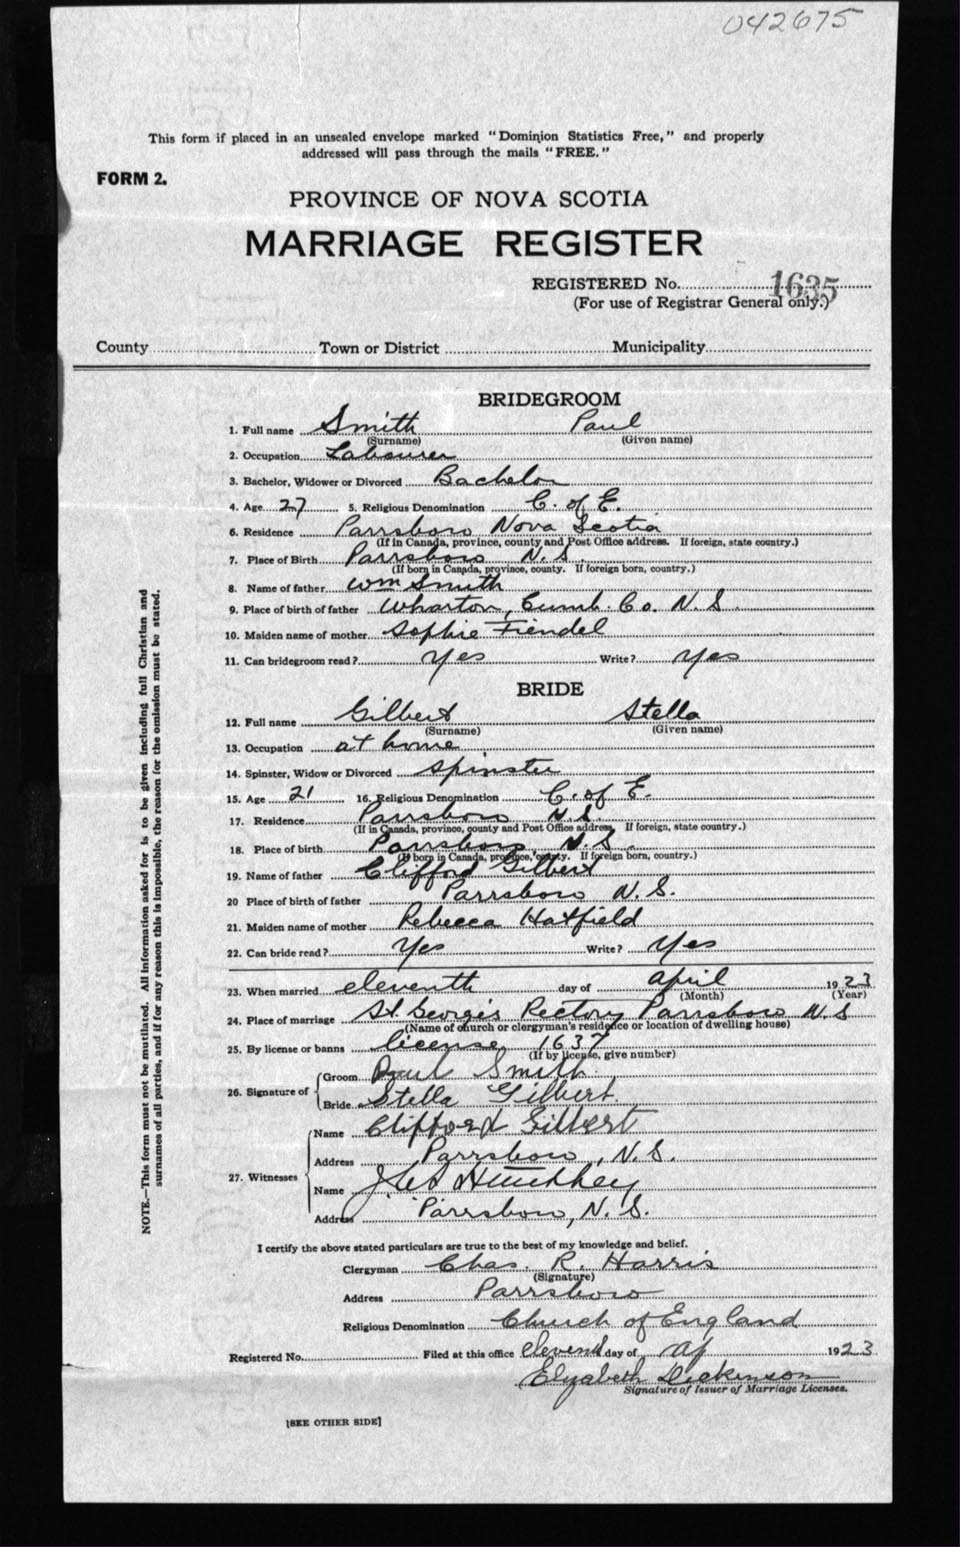 042675
This form if placed in an unsealed envelope marked "Dominion Statistics Free," and properly
addressed will pass through the mails "FREE."
FORM 2.
PROVINCE OF NOVA SCOTIA
MARRIAGE REGISTER
REGISTERED No. 1635
(For use of Registrar General only.)
County Town or District Municipality
BRIDEGROOM
1. Full name Smith Paul
(Surname) (Given name)
2. Occupation Labourer
3. Bachelor, Widower or Divorced Bachelor
4. Age 27 5. Religious Denomination C. of E.
6. Residence Parrsboro Nova Scotia
(If in Canada, province, county and Post Office address. If foreign, state country.)
7. Place of Birth Parrsboro N.S.
(If born in Canada, province, county. If foreign born, country.)
8. Name of father Wm Smith
9. Place of birth of father Wharton, Cumb. Co. N.S.
10. Maiden name of mother Sophie Fiendel
11. Can bridegroom read? Yes Write? Yes
BRIDE
12. Full name Gilbert Stella
(Surname) (Given name)
13. Occupation at home
14. Spinster, Widow or Divorced Spinster
15. Age 21 16. Religious Denomination C. of E.
17. Residence Parrsboro N.S.
(If in Canada, province, county and Post Office address. If foreign, state country.)
18. Place of birth Parrsboro, N.S.
(If born in Canada, province, county. If foreign born, country.)
19. Name of father Clifford Gilbert
20 Place of birth of father Parrsboro N.S.
21. Maiden name of mother Rebecca Hatfield
22. Can bride read? Yes Write? Yes
23. When married eleventh day of April 1923
(Month) (Year)
24. Place of marriage St. George's Rectory Parrsboro N.S
(Name of church or clergyman's residence or location of dwelling house)
25. By license or banns license 1637
(If by license, give number)
26. Signature of Groom Paul Smith
Bride Stella Gilbert
27. Witnesses Name Clifford Gilbert
Address Parrsboro, N.S.
Name
Address Parrsboro, N.S.
I certify the above stated particulars are true to the best of my knowledge and belief.
Clergyman Chas. R. Harris
(Signature)
Address Parrsboro
Religious Denomination Church of England
Registered No. Filed at this office day of Ap 1923
Elizabeth Dickinson
Signature of Issuer of Marriage Licenses.
[SEE OTHER SIDE]
NOTE.—This form must not be mutilated. All information asked for is to be given including full Christian and
surnames of all parties, and if for any reason this is impossible, the reason for the omission must be stated.